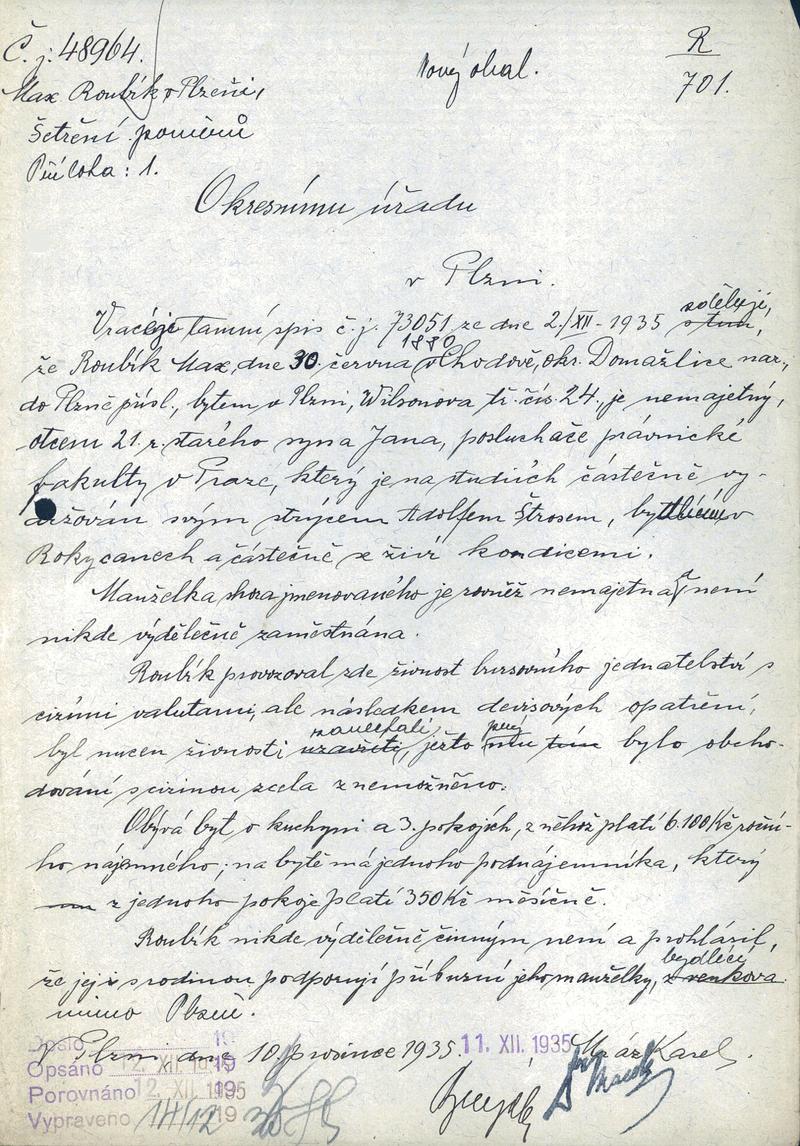 Č. j. 48964.
Nový obal.
R
701.
Max Roubík v Plzni,
Šetření poměrů
Příloha: 1.
Okresnímu úřadu
v Plzni.
Vraceje tamní spis č. j. 73051 ze dne 2./XII-1935 sděluji,
že Roubík Max, dne 30. června 1880 v Chodově, okr. Domažlice nar.,
do Plzně přísl., bytem v Plzni, Wilsonova tř. čís. 24., je nemajetný,
otcem 21. r. starého syna Jana, posluchače právnické
fakulty v Praze, který je na studiích částečně vy-
držován svým strýcem Adolfem Štrosem, v
Rokycanech a částečně se živí kondicemi.
Manželka shora jmenovaného je rovněž nemajetná a není
nikde výdělečně zaměstnána.
Roubík provozoval zde živnost bursovního jednatelství s
cizími valutami, ale následkem devisových opatření,
byl nucen živnosti zanechati, ježto bylo obcho-
dování s cizinou zcela znemožněno.
Obývá byt o kuchyni a 3. pokojích, z něhož platí 6.100 Kč roční-
ho nájemného; na bytě má jednoho podnájemníka, který
z jednoho pokoje platí 350 Kč měsíčně.
Roubík nikde výdělečně činným není a prohlásil,
že jej s rodinou podporují příbuzní jeho manželky, bydlící
mimo Plzeň.
V Plzni dne 10. prosince 1935. 11. XII. 1935 Mráz Karel.
Došlo 19
Opsáno 12. XII. 1935
Porovnáno 12. XII. 1935
Vypraveno 14/12 19